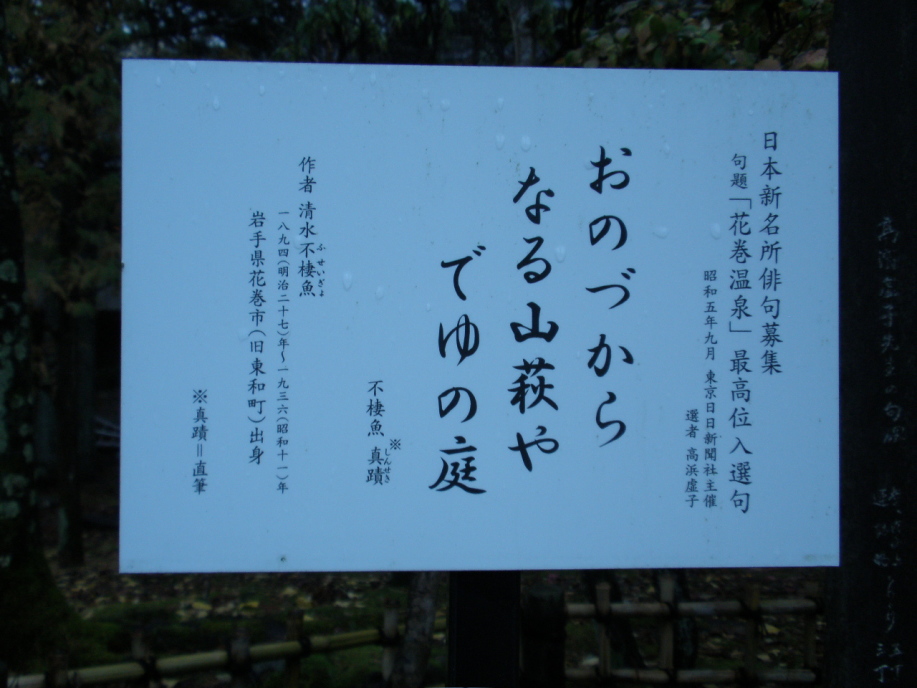 日本新名所俳句募集
句題「花巻温泉」最高位入選句
昭和五年九月 東京日日新聞社主催
選者 高浜虚子
おのづから
なる山萩や
でゆの庭
不棲魚 真蹟※
しんせき
作者 清水不棲魚
ふせいぎょ
一八九四(明治二十七)年〜一九三六(昭和十一)年
岩手県花巻市(旧東和町)出身
※真蹟=直筆